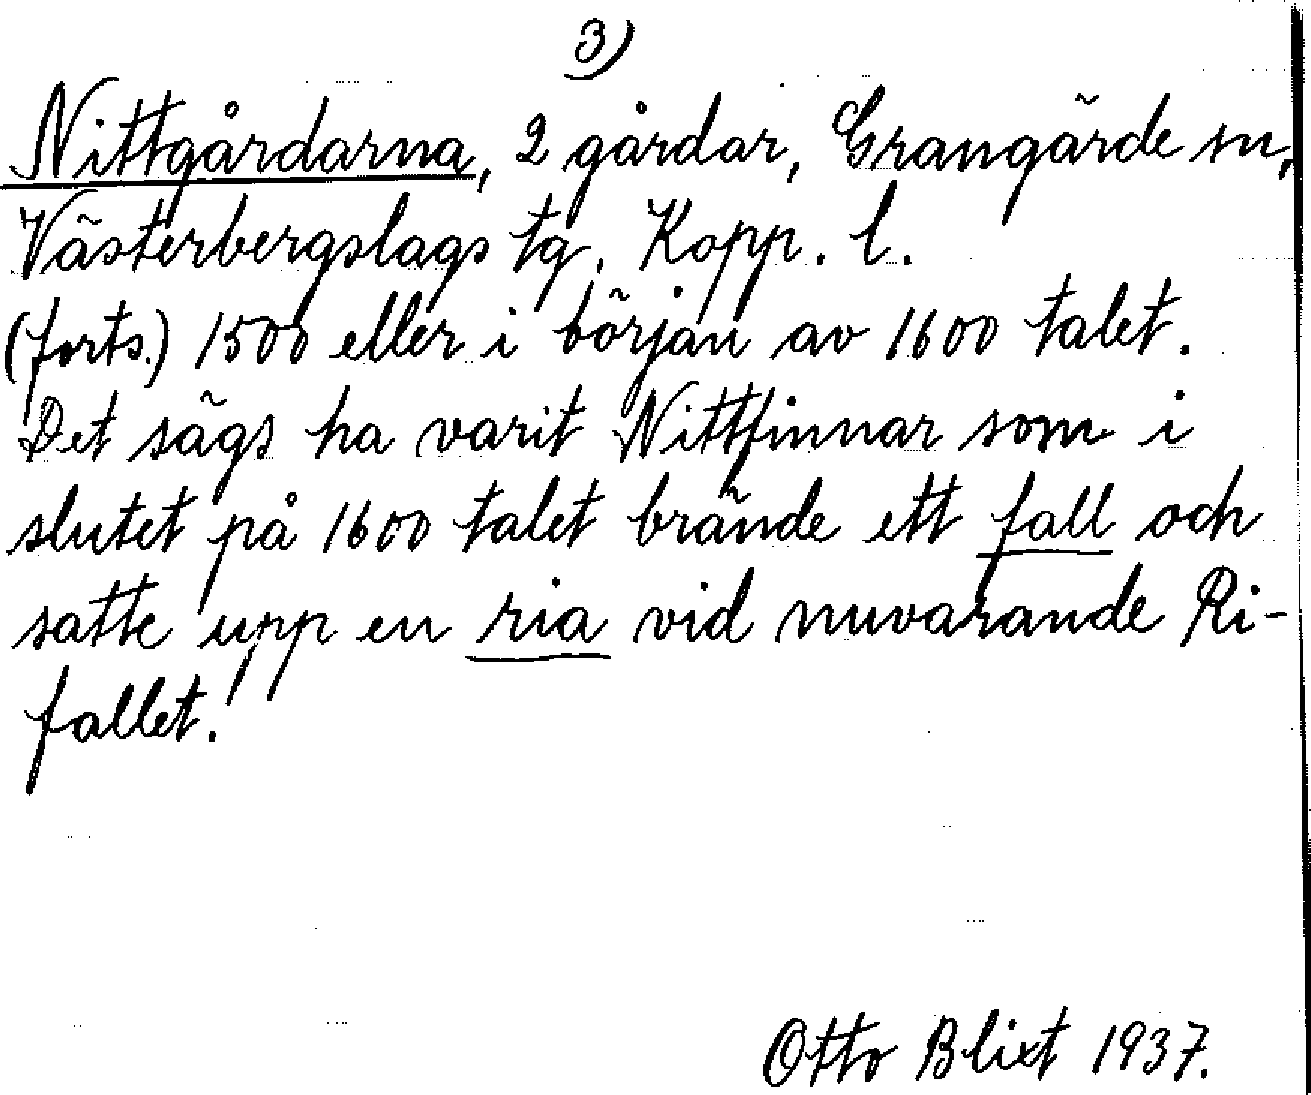 3)
Nittgårdarna, 2 gårdar, Grangärde sn,
Västerbergslags tg, Kopp. l.
(forts.) 1500 eller i början av 1600 talet.
Det sägs ha varit Nittfinnar som i
slutet på 1600 talet brände ett fall och
satte upp en ria vid nuvarande Ri-
fallet.
Otto Blixt 1937.